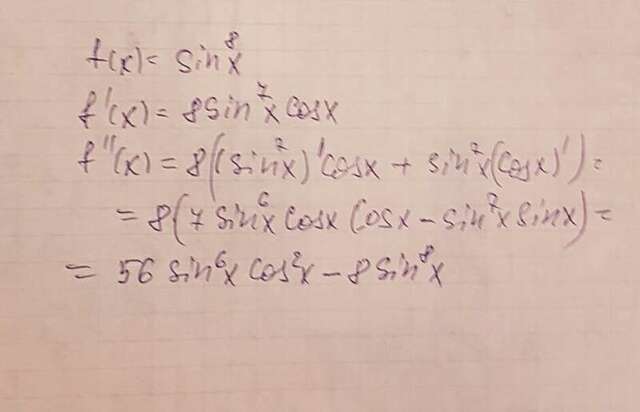 f(x) = sin⁸x
f'(x) = 8sin⁷x cosx
f''(x) = 8((sin⁷x)'cosx + sin⁷x(cosx)') =
= 8(7 sin⁶x cosx cosx − sin⁷x sinx) =
= 56 sin⁶x cos²x − 8 sin⁸x